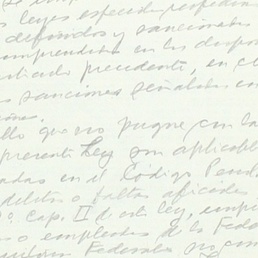 s leyes especiales
definidos y sancionados
comprendidos en las dispos
tículo precedente, en c
s sanciones señaladas en
ones.
llo que no pugne con la
presente Ley son aplicabl
adas en el Código Pen
delitos o faltas oficiales
o. Cap. II de esta ley,
s o empleados de la Fede
Federales no com